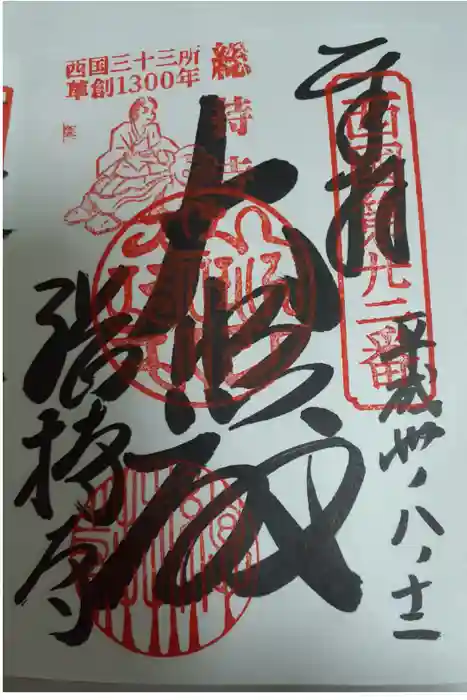 奉拝
西国第廿二番
平成卅ノ八ノ十二
大悲殿
総持寺
総持寺
西国三十三所
草創1300年